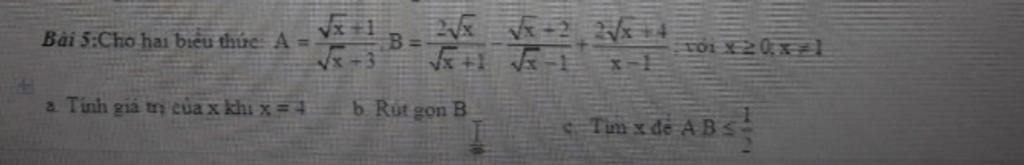 Bài 5:Cho hai biểu thức: A = (√x + 1)/(√x + 3); B = (2√x)/(√x + 1) − (√x + 2)/(√x − 1) + (2√x + 4)/(x − 1); với x ≥ 0; x ≠ 1
a. Tính giá trị của x khi x = 4 b. Rút gọn B
c. Tìm x để A.B ≤ 1/2